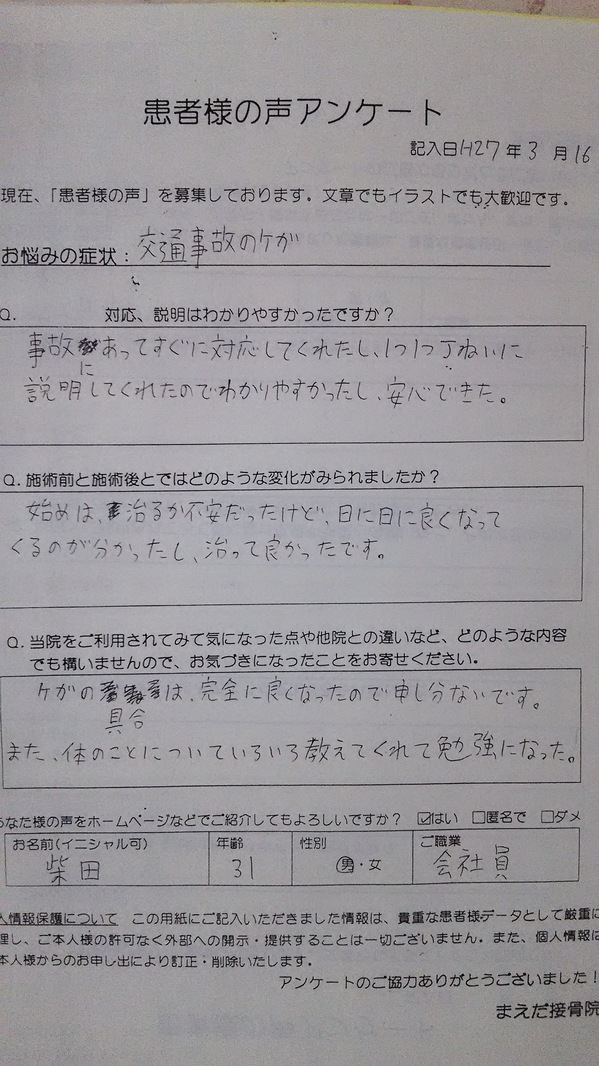 患者様の声アンケート
記入日H27年3月16
現在、「患者様の声」を募集しております。文章でもイラストでも大歓迎です。
お悩みの症状：交通事故のケガ
Q. 対応、説明はわかりやすかったですか？
事故にあってすぐに対応してくれたし、1つ1つ丁ねいに
説明してくれたのでわかりやすかったし、安心できた。
Q. 施術前と施術後とではどのような変化がみられましたか？
始めは、治るか不安だったけど、日に日に良くなって
くるのが分かったし、治って良かったです。
Q. 当院をご利用されてみて気になった点や他院との違いなど、どのような内容
でも構いませんので、お気づきになったことをお寄せください。
ケガの具合は、完全に良くなったので申し分ないです。
また、体のことについていろいろ教えてくれて勉強になった。
なた様の声をホームページなどでご紹介してもよろしいですか？ ☑はい □匿名で □ダメ
お名前(イニシャル可) 年齢 性別 ご職業
柴田 31 男・女 会社員
人情報保護について この用紙にご記入いただきました情報は、貴重な患者様データとして厳重に
理し、ご本人様の許可なく外部への開示・提供することは一切ございません。また、個人情報は
本人様からのお申し出により訂正・削除いたします。
アンケートのご協力ありがとうございました！
まえだ接骨院